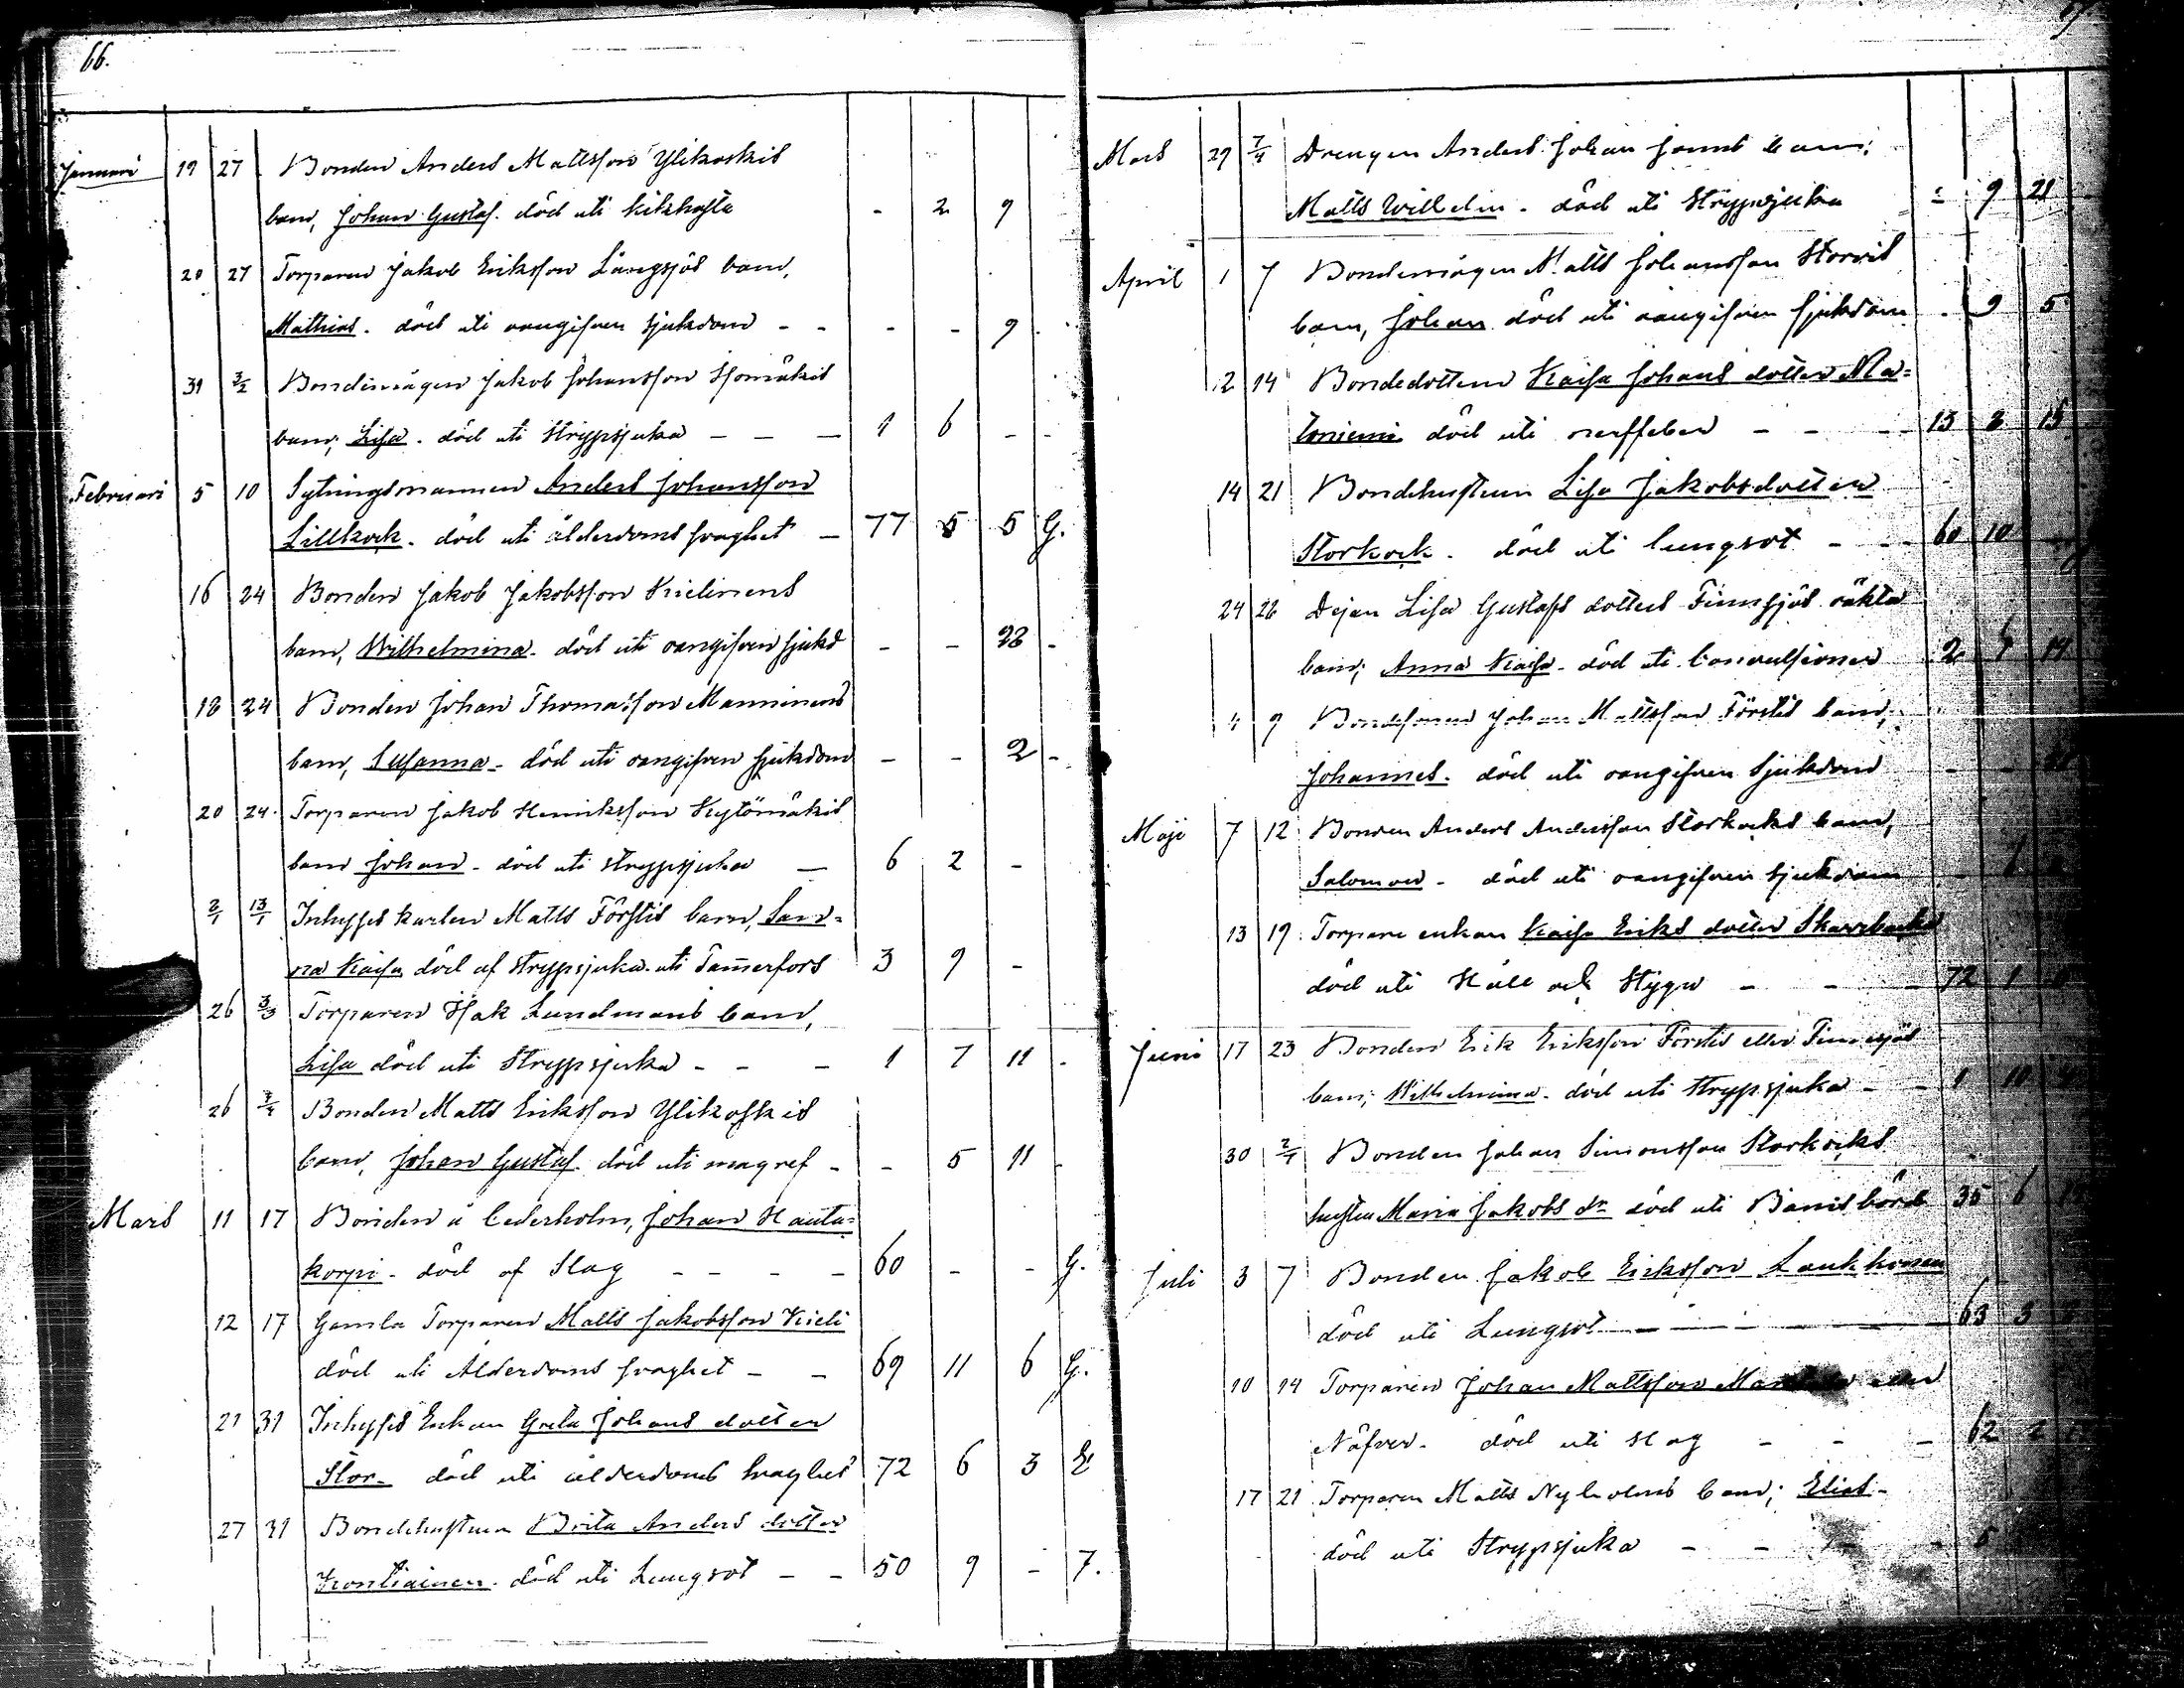 66.
Januari 19 27 Bonden Anders Mattsson Ylikoskis
barn, Johan Gustaf. död uti kikhosta - 2 9
20 27 Torparen Jakob Eriksson Långsjös barn,
Mathias. död uti oangifven sjukdom - - - - 9
31 3/2 Bondemågen Jakob Johansson
barn, Lisa. död uti Strypsjuka - - - 1 6 - -
Februari 5 10 Sytningsmannen Anders Johansson
Lillkock. död uti ålderdoms svaghet - 77 5 5 G.
16 24 Bonden Jakob Jakobsson Kielinens
barn, Wilhelmina. död uti oangifven sjukd - - 28 -
18 24 Bonden Johan Thomasson Manninens
barn, Susanna - död uti oangifven sjukdom - - 2 -
20 24. Torparen Jakob Henriksson Kytömäkis
barn Johan - död uti strypsjuka - 6 2 -
2/1 13/1 Inhyses karlen Matts Förstis barn, San-
na Kaisa död af strypsjuka uti Tam̅erfors 3 9 -
26 3/3 Torparen Isak Lundmans barn,
Lisa död uti Strypsjuka - - - 1 7 11 -
26 Bonden Matts Eriksson Ylikoskis
barn, Johan Gustaf. död uti magref - - 5 11 -
Mars 11 17 Bonden å Cederholm, Johan Hauta=
korpi - död af Slag - - - - 60 - - G.
12 17 Gamla Torparen Matts Jakobsson Kieli
död uti Ålderdoms svaghet - - 69 11 6 G.
21 31 Inhyses Enkan Greta Johans dotter
Stor- död uti ålderdoms svaghet 72 6 3 E
27 31 Bondehustrun Brita Anders dotter
Kontiainen. död uti Lungsot - - 50 9 - 7.
Mars 29 7/4 Drengen Anders Johan barn;
Matts Wilhelm - död uti Strypsjuka - 9 21
April 1 7 Bondemågen Matts Johansson Storvis
barn, Johan död uti oangifven sjukdom - 9 5
12 14 Bondedottern Kaisa Johans dotter Ma=
toniemi död uti nerffeber - - - 13 8 15
14 21 Bondehustrun Lisa Jakobsdotter
Storkock. död uti lungsot - - 60 10 -
24 28 Dejan Lisa Gustafs dotters Finnsjös oäkta
barn; Anna Kaisa - död uti Convulsioner 2 14
9 Bondesonen Johan Mattsson Förstis barn,
Johannes. död uti oangifven Sjukdom - -
Maji 7 12 Bonden Anders Andersson Storkocks barn,
Salomon - död uti oangifven sjukdom
13 19 Torpare enkan Kaisa Eriks dotter Skarsbacka
död uti Håll och Stygn - - - 72 1
Juni 17 23 Bonden Erik Eriksson Förstis eller Finnsjös
barn; Wilhelmina. död uti Strypsjuka - - 1
30 Bonden Johan Simonsson Storkocks
hustru Maria Jakobs dr. död uti Barnsbörd 35 6
Juli 3 7 Bonden Jakob Eriksson Laukkonen
död uti Lungsot - - - - 63 3
10 14 Torparen Johan Mattsson eller
Näfver. död uti Slag - - - 62 2
17 21 Torparen Matts Nyholms barn; Elias -
död uti Strypsjuka - -